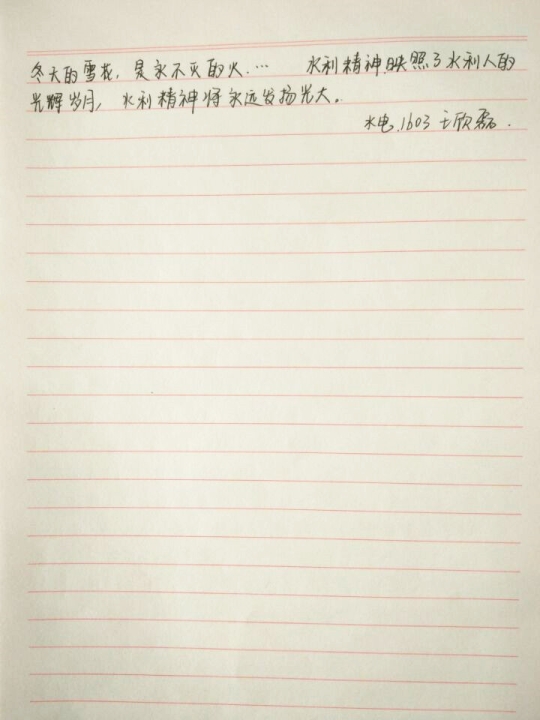 冬天的雪花,是永不灭的火.… 水利精神映照了水利人的
光辉岁月,水利精神将永远发扬光大。
水电.1603 王欣磊.